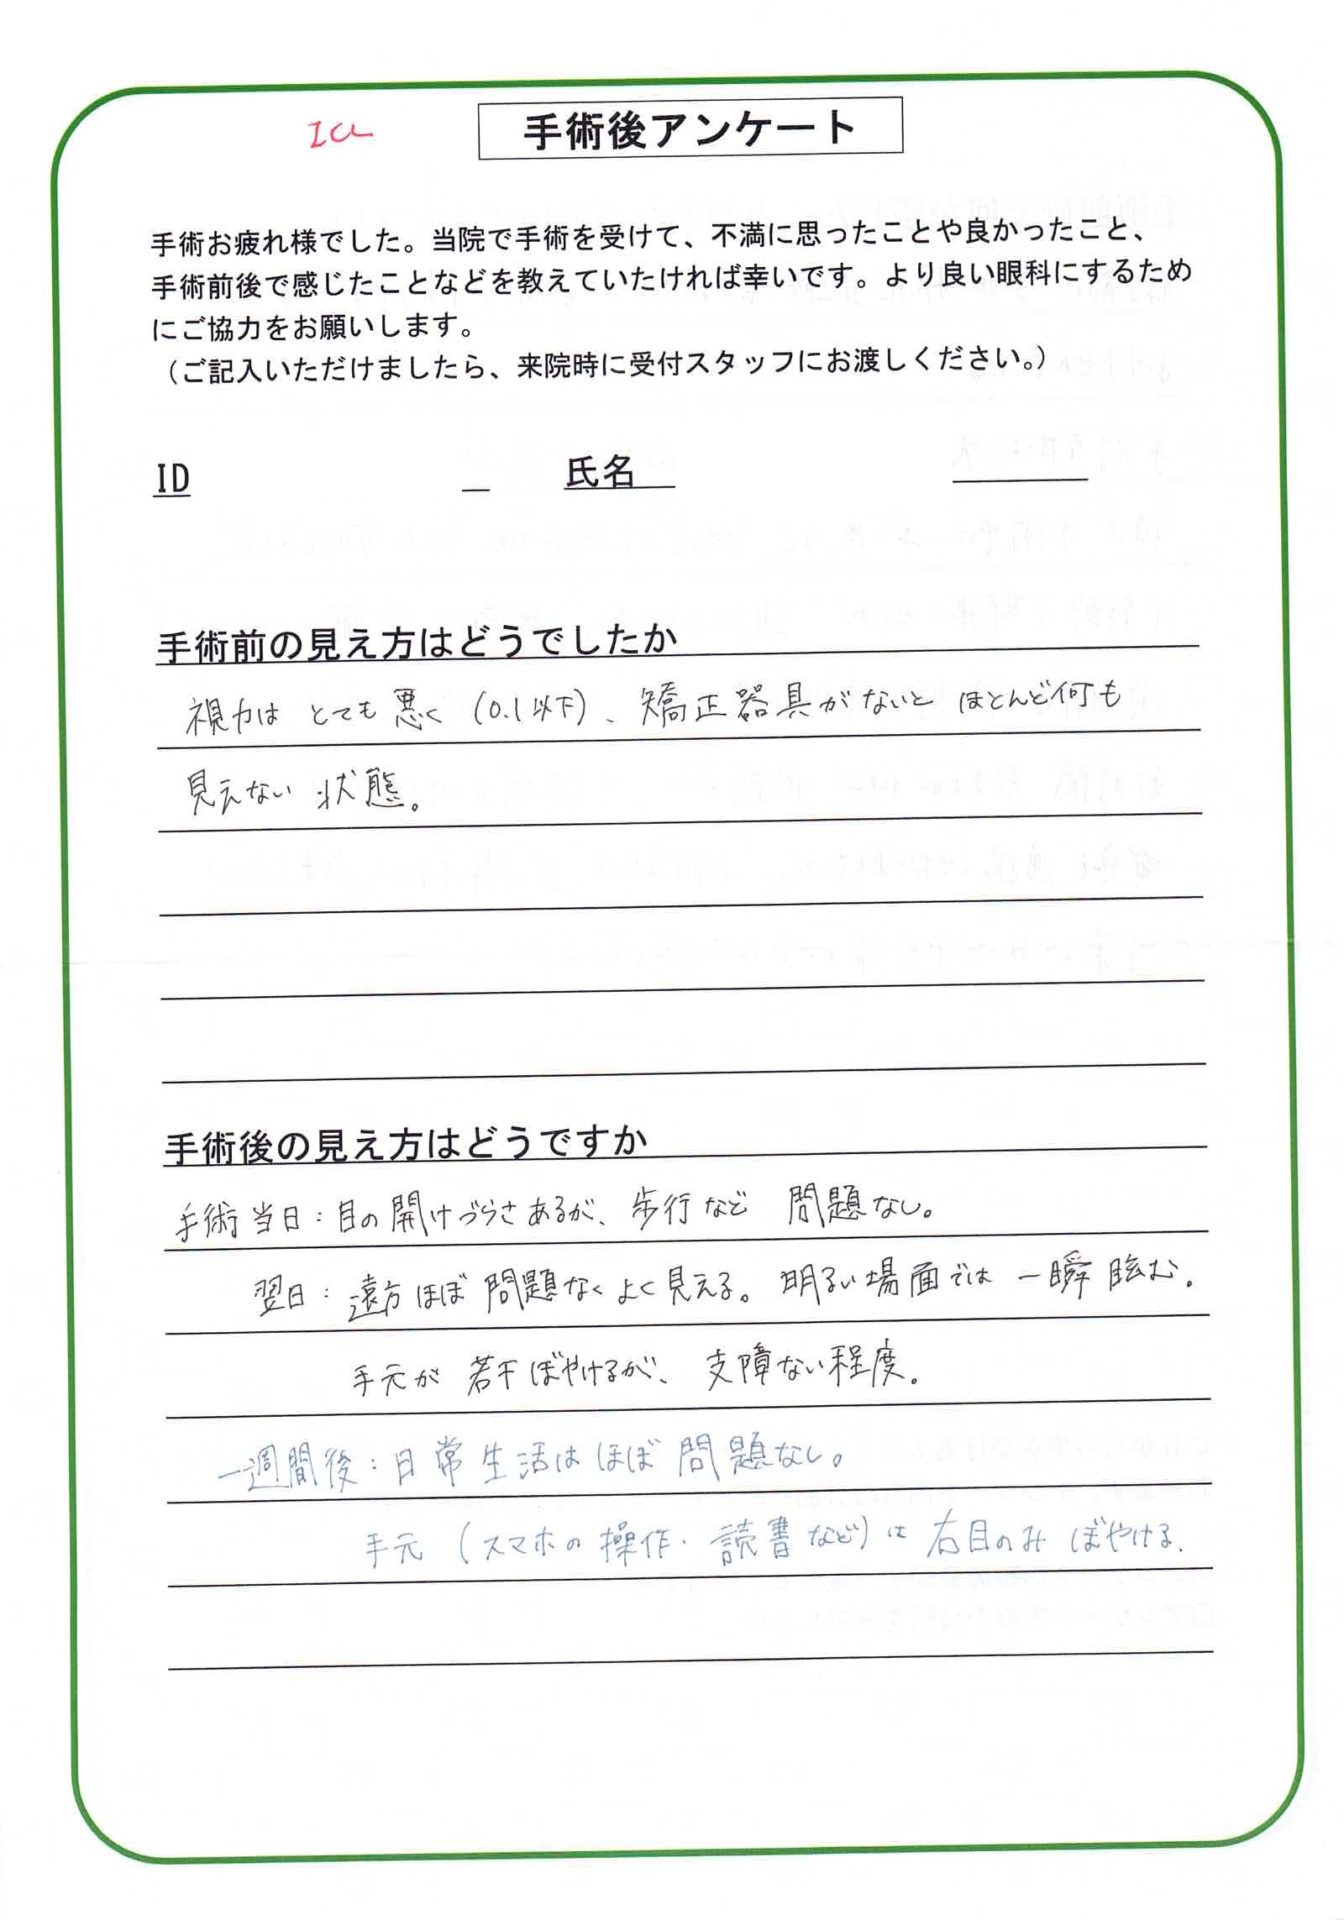 ICL
手術後アンケート
手術お疲れ様でした。当院で手術を受けて、不満に思ったことや良かったこと、
手術前後で感じたことなどを教えていたければ幸いです。より良い眼科にするため
にご協力をお願いします。
（ご記入いただけましたら、来院時に受付スタッフにお渡しください。）
ID 氏名
手術前の見え方はどうでしたか
視力は とても悪く (0.1以下)、矯正器具がないと ほとんど何も
見えない 状態。
手術後の見え方はどうですか
手術当日：目の開けづらさあるが、歩行など 問題なし。
翌日：遠方ほぼ 問題なくよく見える。明るい場面では 一瞬眩む。
手元が 若干ぼやけるが、支障ない程度。
一週間後：日常生活はほぼ 問題なし。
手元 (スマホの操作・読書など) は 右目のみ ぼやける。